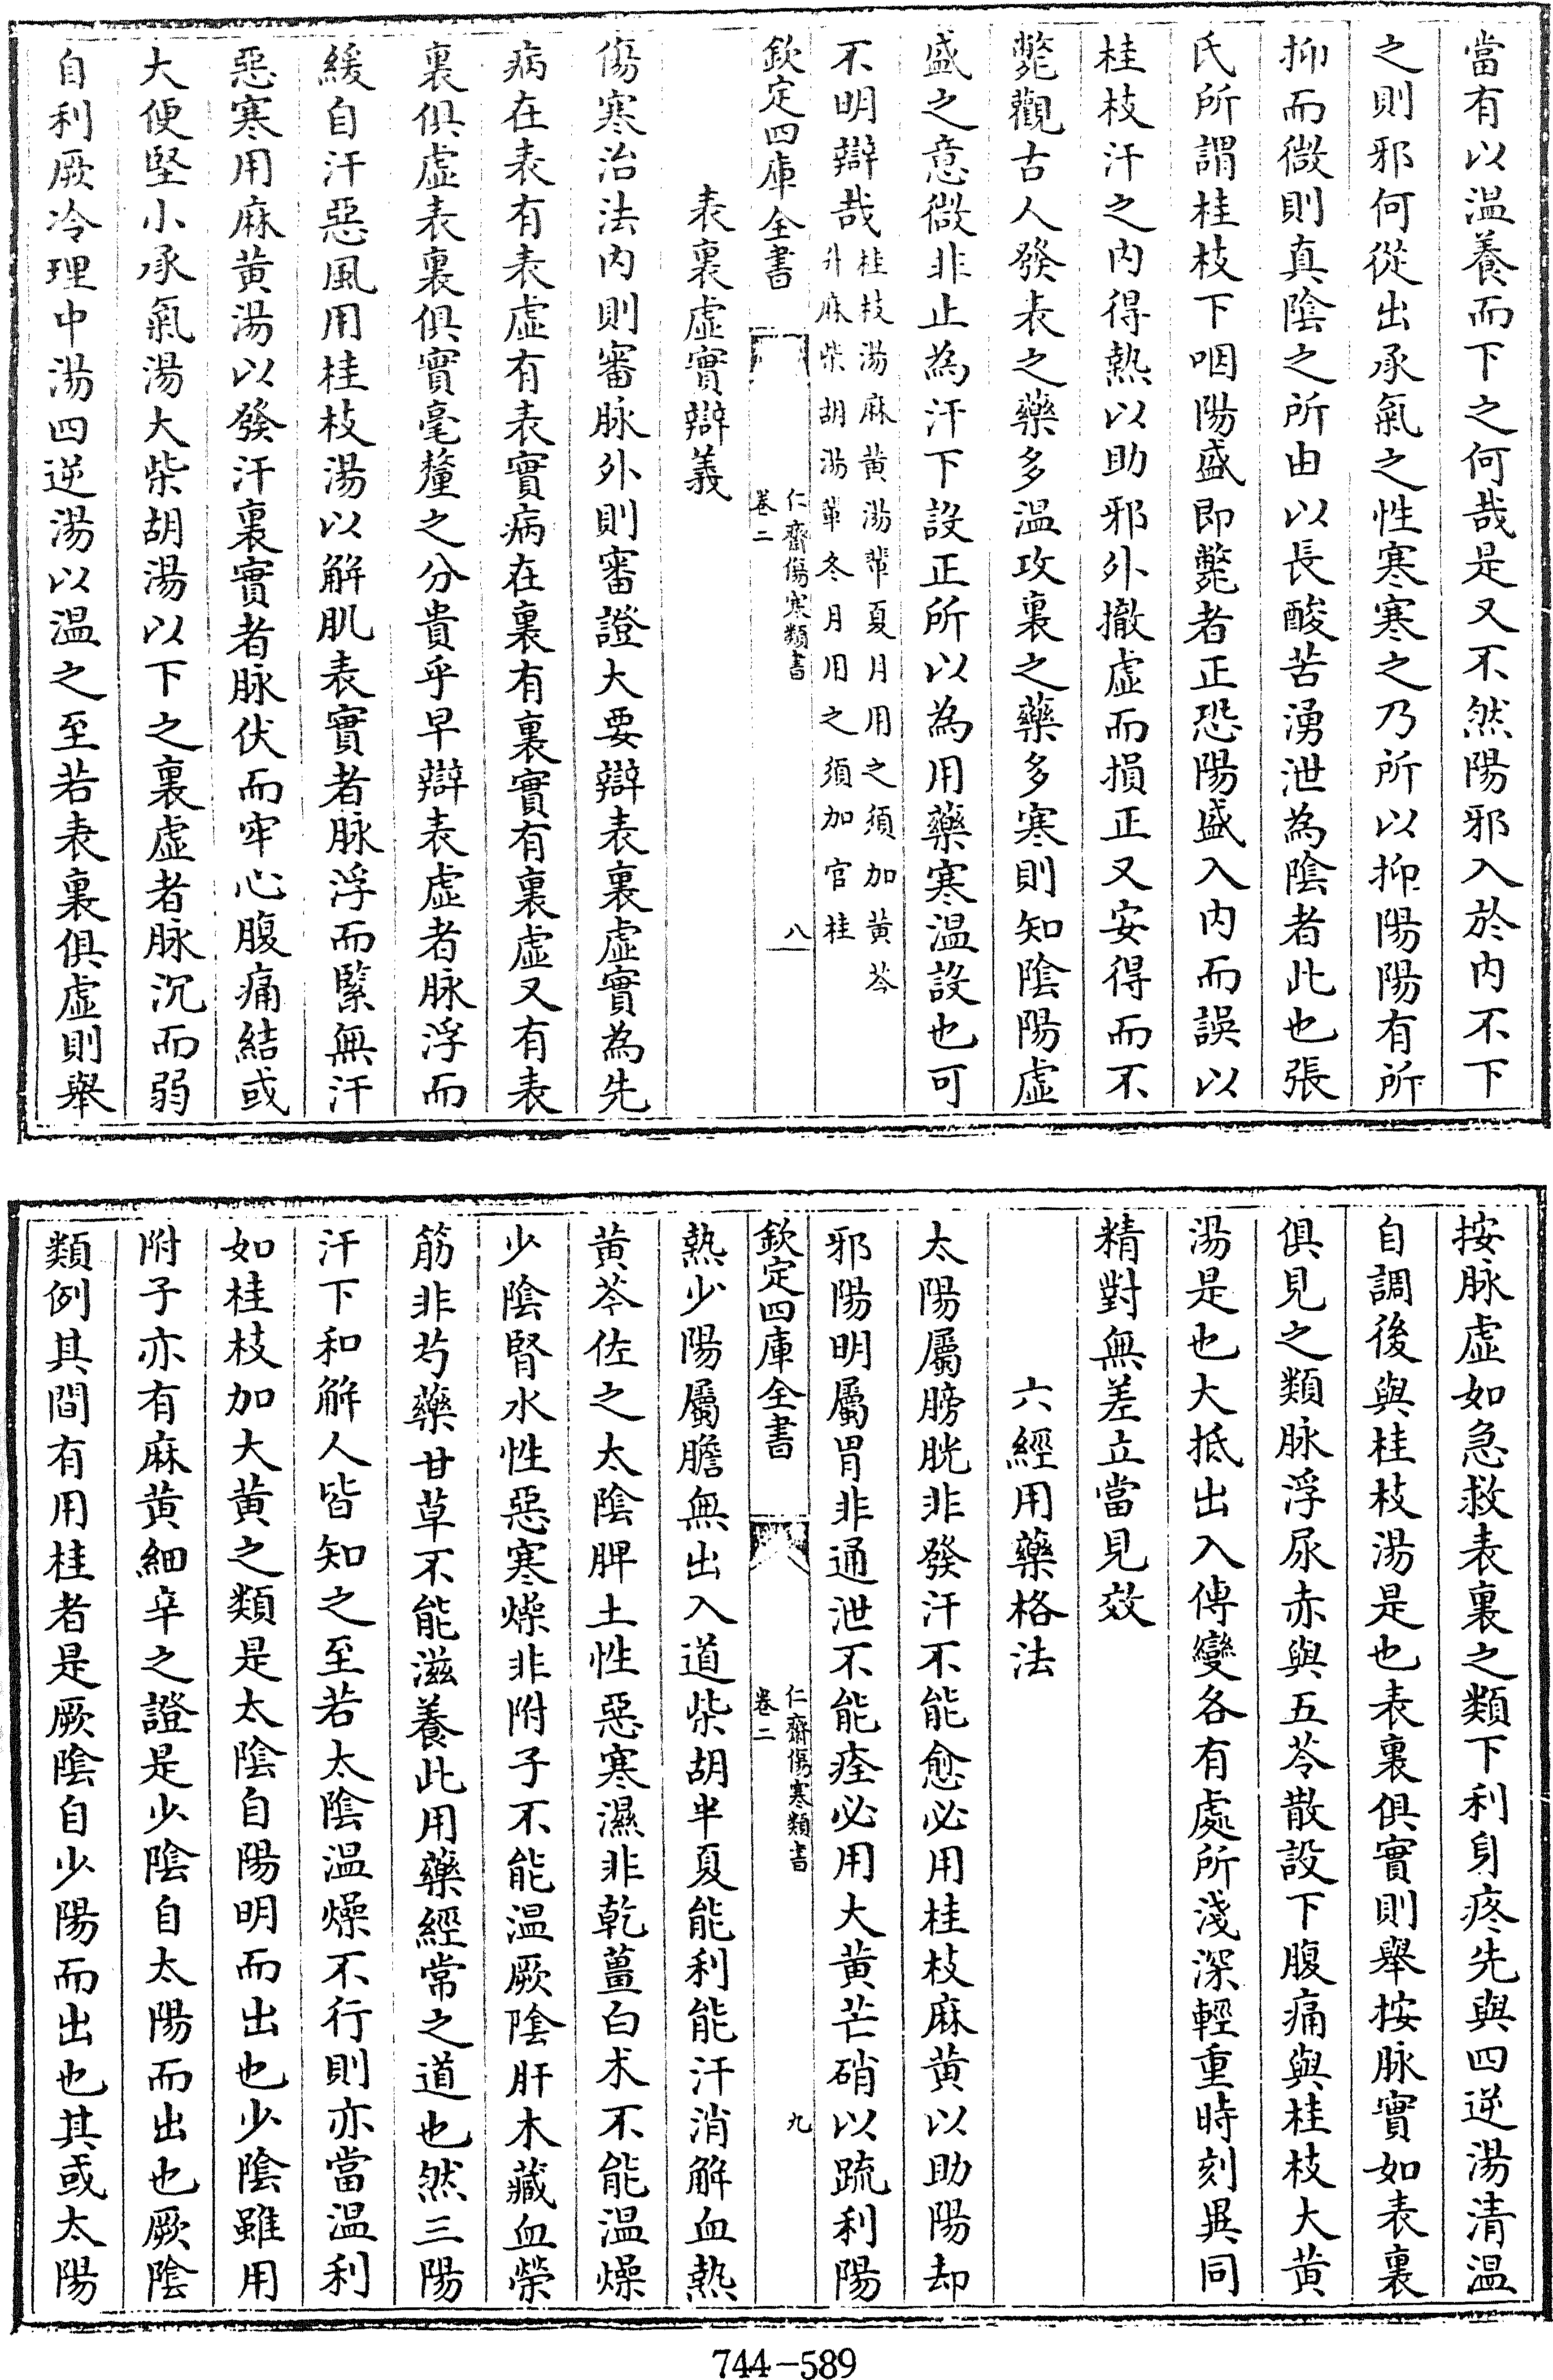 當有以温養而下之何哉是又不然陽邪入於内不下
之則邪何從出承氣之性寒寒之乃所以抑陽陽有所
抑而微則真陰之所由以長酸苦湧泄為陰者此也張
氏所謂桂枝下咽陽盛即斃者正恐陽盛入内而誤以
桂枝汗之内得熱以助邪外撤虚而損正又安得而不
斃觀古人發表之藥多温攻裏之藥多寒則知陰陽虚
盛之意微非止為汗下設正所以為用藥寒温設也可
不明辯哉桂枝湯麻黄湯輩夏月用之須加黄芩
升麻柴胡湯輩冬月用之須加官桂
欽定四庫全書
仁齋傷寒類書
卷二
八
表裏虚實辯義
傷寒治法内則審脉外則審證大要辯表裏虚實為先
病在表有表虚有表實病在裏有裏實有裏虚又有表
裏俱虚表裏俱實毫釐之分貴乎早辯表虚者脉浮而
緩自汗惡風用桂枝湯以解肌表實者脉浮而緊無汗
惡寒用麻黄湯以發汗裏實者脉伏而牢心腹痛結或
大便堅小承氣湯大柴胡湯以下之裏虚者脉沉而弱
自利厥冷理中湯四逆湯以温之至若表裏俱虚則舉
按脉虚如急救表裏之類下利身疼先與四逆湯清温
自調後與桂枝湯是也表裏俱實則舉按脉實如表裏
俱見之類脉浮尿赤與五苓散設下腹痛與桂枝大黄
湯是也大抵出入傳變各有處所淺深輕重時刻異同
精對無差立當見效
六經用藥格法
太陽屬膀胱非發汗不能愈必用桂枝麻黄以助陽却
邪陽明屬胃非通泄不能痊必用大黄芒硝以疏利陽
欽定四庫全書
仁齋傷寒類書
卷二
九
熱少陽屬膽無出入道柴胡半夏能利能汗消解血熱
黄芩佐之太陰脾土性惡寒濕非乾薑白术不能温燥
少陰腎水性惡寒燥非附子不能温厥陰肝木藏血榮
筋非芍藥甘草不能滋養此用藥經常之道也然三陽
汗下和解人皆知之至若太陰温燥不行則亦當温利
如桂枝加大黄之類是太陰自陽明而出也少陰雖用
附子亦有麻黄細辛之證是少陰自太陽而出也厥陰
類例其間有用桂者是厥陰自少陽而出也其或太陽
744-589